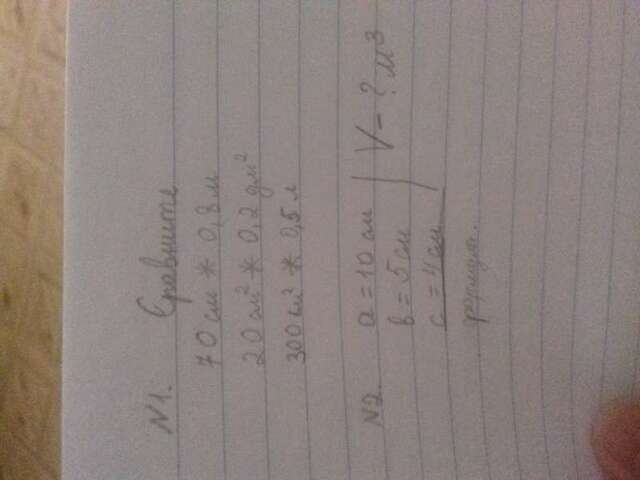 N1. Сравните
70 см * 0,8 м
20 см² * 0,2 дм²
300 см² * 0,5 л
N2. a = 10 см
b = 5 см
c = 4 см
V - ? м³
формула.